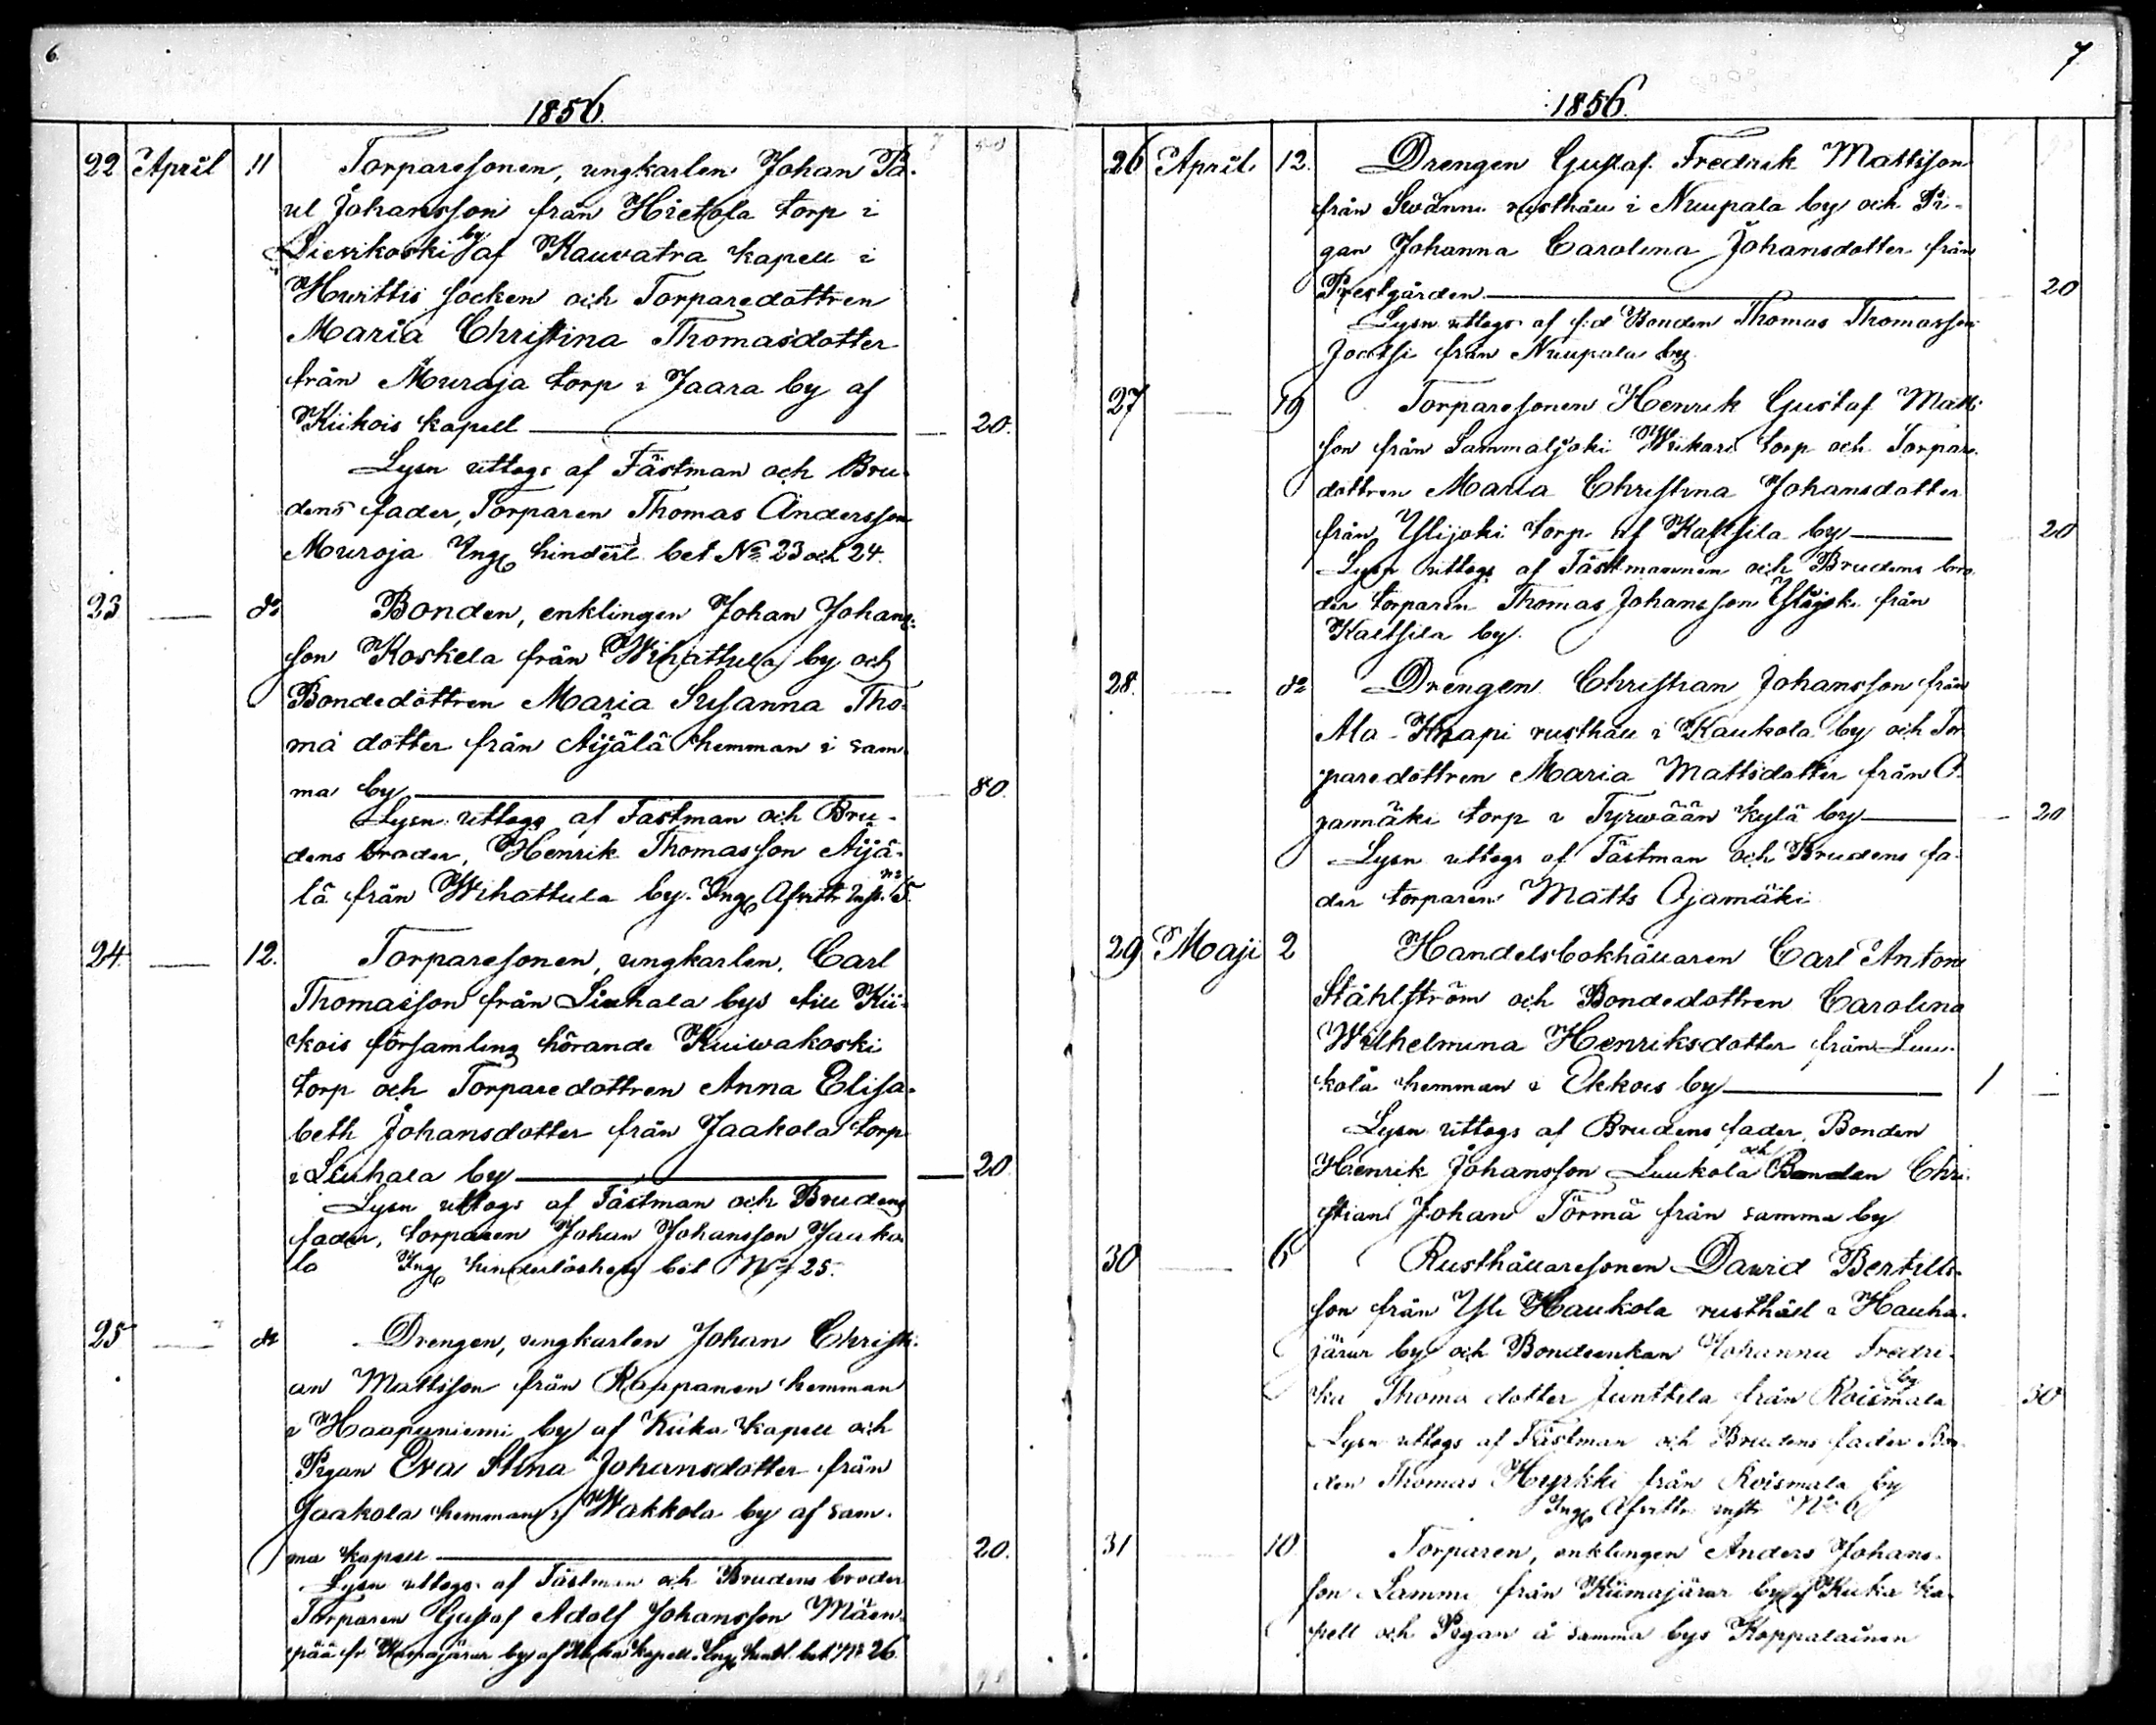 6.
1856.
22 April 11 Torparesonen, ungkarlen Johan Pa-
ul Johansson från Hietola torp i
Lievikoski by af Kauvatra kapell i
Hvittis socken och Torparedottren
Maria Christina Thomasdotter
från Muroja torp i Jaara by af
Kiikois kapell — 20.
Lysn uttogs af Fästman och Bru-
dens fader, Torparen Thomas Andersson
Muroja Ing hindersl bet No 23 och 24.
23 — do Bonden, enklingen Johan Johans-
son Koskela från Wihattula by och
Bondedottren Maria Susanna Tho-
mä dotter från Äijälä hemman i sam-
ma by — 80.
Lysn uttogs af Fästman och Bru-
dens broder, Henrik Thomasson Äijä-
lä från Wihattula by. Ing Afvittr Inst. no 5.
24. — 12. Torparesonen, ungkarlen, Carl
Thomasson från Liuhala bys till Kii-
kois församling hörande Kuiwakoski
torp och Torparedottren Anna Elisa-
beth Johansdotter från Jaakola torp
i Liuhala by — 20
Lysn uttogs af Fästman och Brudens
fader, torparen Johan Johansson Jaako-
la Ing hinderlöshets bet No 25.
25 — do Drengen, ungkarlen Johan Christi-
an Mattsson från Rappanen hemman
i Haapaniemi by af Kiika kapell och
Pigan Eva Stina Johansdotter från
Jaakola hemman i Wakkola by af sam-
ma kapell — 20.
Lysn uttogs af Fästman och Brudens broder
Torparen Gustaf Adolf Johansson Mäen-
pää fr by af Kiika kapell. Ing hindl. bet No 26.
7
1856.
26 April 12. Drengen Gustaf Fredrik Mattsson
från Swänni rusthåll i Nuupala by och Pi-
gan Johanna Carolina Johansdotter från
Prestgården — 20
Lysn uttogs af f:d Bonden Thomas Thomasson
från Nuupala by.
27 — 19 Torparesonen Henrik Gustaf Matts-
son från Sammaljoki Wiikari torp och Torpare-
dottren Maria Christina Johansdotter
från Ylijoki torp af Kaltsila by — 20
Lysn uttogs af Fästmannen och Brudens bro-
der torparen Thomas Johansson Ylijoki från
Kaltsila by.
28. — do Drengen Christian Johansson från
Ala-Knapi rusthåll i Kaukola by och Tor-
paredottren Maria Mattsdotter från O-
jamäki torp i Tyrwään kylä by — 20
Lysn uttogs af Fästman och Brudens fa-
der torparen Matts Ojamäki
29 Maji 2 Handelsbokhållaren Carl Anton
Ståhlström och Bondedottren Carolina
Wilhelmina Henriksdotter från Luu-
kola hemman i Ekkois by — 1 —
Lysn uttogs af Brudens fader, Bonden
Henrik Johansson Luukola och Bonden Chri-
stian Johan Törmä från samma by
30 — 6 Rusthållaresonen David Bertills-
son från Yli Haukola rusthåll i Houha-
järvi by och Bondeenkan Johanna Fredri-
ka Thomä dotter Junttila från Roismala by 30
Lysn uttogs af Fästman och Brudens fader Bon-
den Thomas Hyrkki från Roismala by
Ing Afvittr instr No 6
31 10 Torparen, enklingen Anders Johans-
son Lammi från Kiimajärvi by af Kiika ka-
pell och Pigan å samma bys Koppalainen